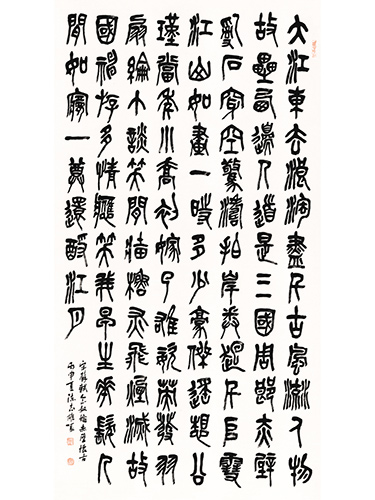 大江東去浪淘盡千古風流人物
故壘西邊人道是三國周郎赤壁
亂石穿空驚濤拍岸卷起千堆雪
江山如畫一時多少豪傑遙想公
瑾當年小喬初嫁了雄姿英發羽
扇綸巾談笑間檣櫓灰飛煙滅故
國神遊多情應笑我早生華髮人
間如夢一尊還酹江月
宋蘇軾念奴嬌赤壁懷古
丙申夏